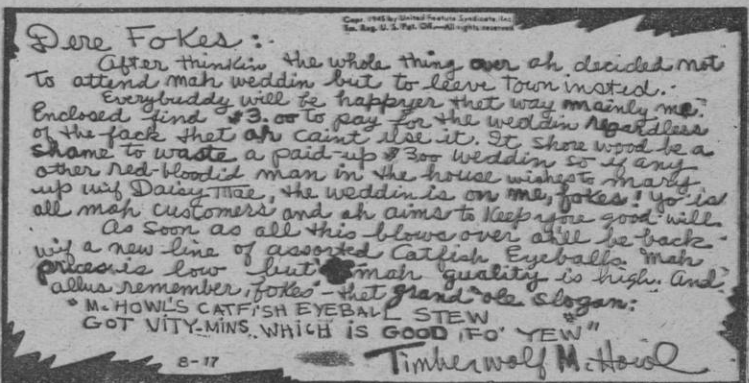 Copr. 1945 by United Feature Syndicate, Inc.
Tm. Reg. U. S. Pat. Off.—All rights reserved
Dere Fokes:
After thinkin the whole thing over ah decided not
to attend mah weddin but to leeve town insted.
Everybuddy will be happyer thet way mainly me.
Enclosed find $3.00 to pay for the weddin regardless
of the fack thet ah caint use it. It shore wood be a
shame to waste a paid-up $300 weddin so if any
other red-bloodid man in the house wishes to marry
up wif Daisy Mae, the weddin is on me, fokes! Yo' is
all mah customers and ah aims to keep yore good will.
As soon as all this blows over ah'll be back
wif a new line of assorted Catfish Eyeballs. Mah
prices is low but mah quality is high. And
allus remember, fokes thet grand ole slogan:
"McHOWL'S CATFISH EYEBALL STEW
GOT VITY-MINS WHICH IS GOOD FO' YEW"
Timberwolf McHowl
8-17